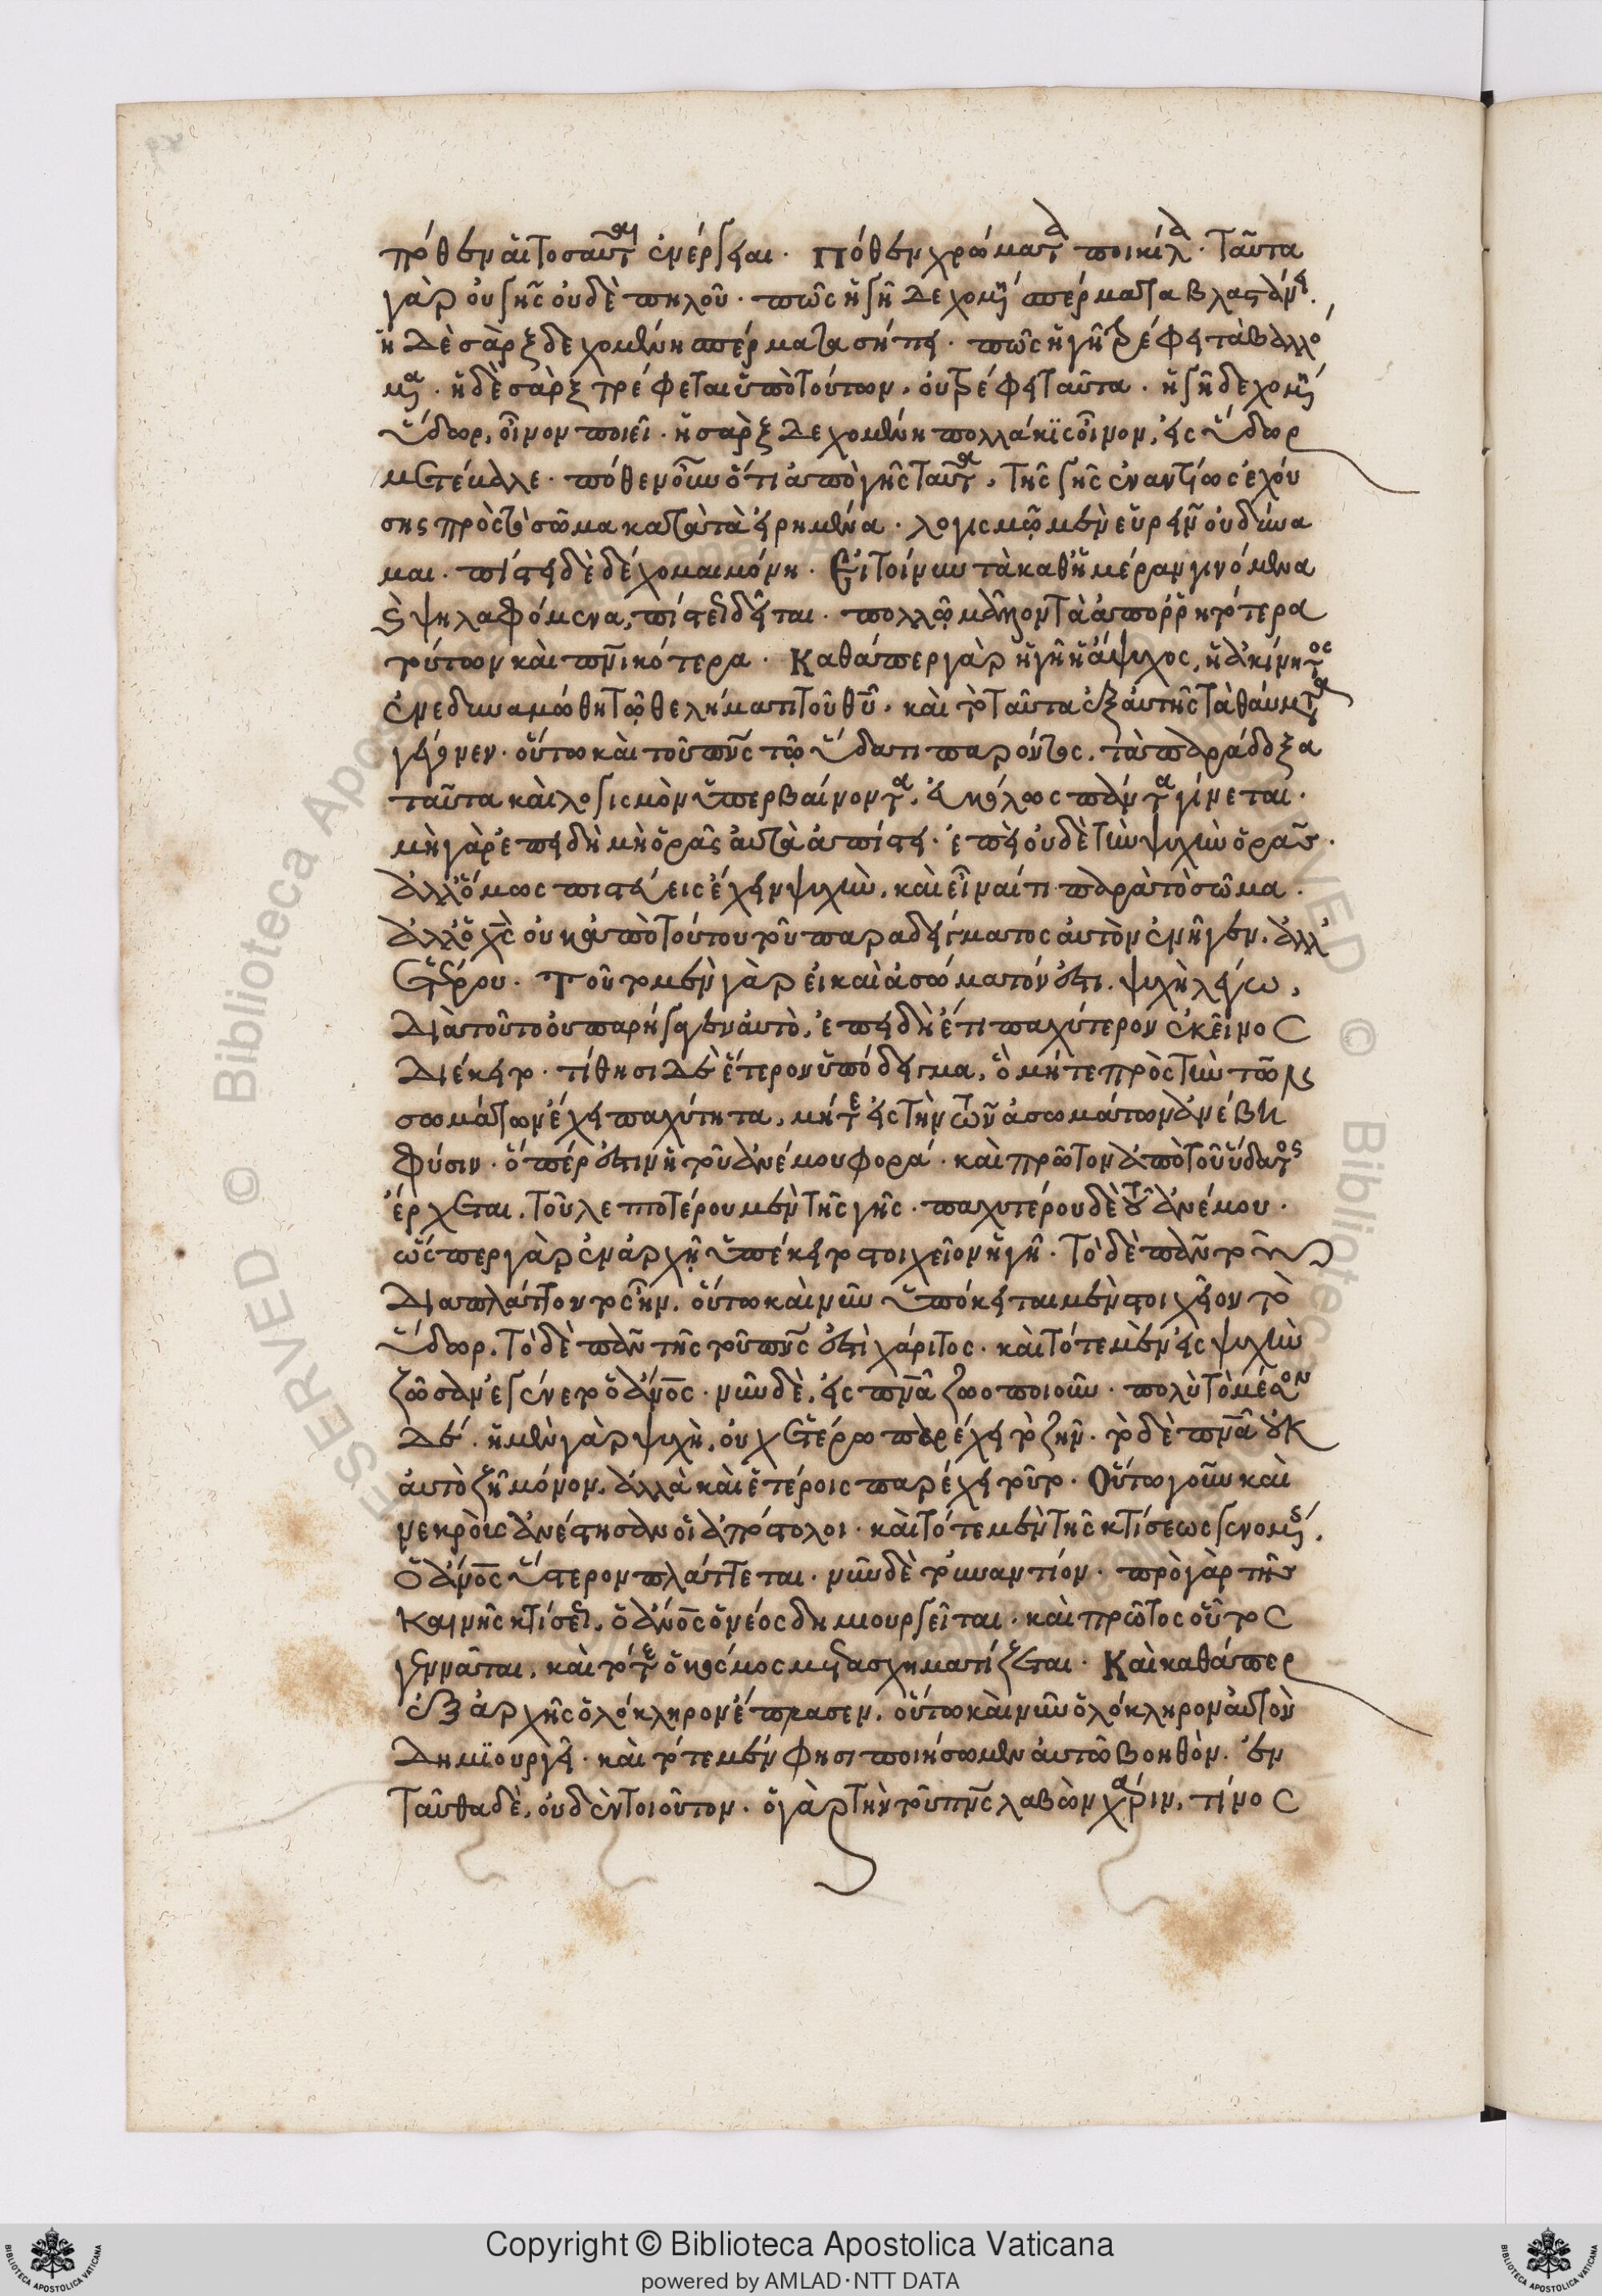 πόθεν αἱ τοσαῦται ἐνέργειαι. Πόθεν χρώματα ποικίλα. ταῦτα
γὰρ οὐ γῆς οὐδὲ πηλοῦ. πῶς ἡ γῆ δεχομένη σπέρματα βλαστάνει.
ἡ δὲ σὰρξ δεχομένη σπέρματα σήπει. πῶς ἡ γῆ τρέφει τὰ βαλλό
μενα. ἡ δὲ σὰρξ τρέφεται ὑπὸ τούτων, οὐ τρέφει ταῦτα. ἡ γῆ δεχομένη
ὕδωρ, οἶνον ποιεῖ. ἡ σὰρξ δεχομένη πολλάκις οἶνον, εἰς ὕδωρ
μετέβαλε. πόθεν οὖν ὅτι ἀπὸ γῆς ταῦτα, τῆς γῆς ἐναντίως ἐχού
σης πρὸς τὸ σῶμα κατὰ τὰ εἰρημένα. λογισμῷ μὲν εὑρεῖν οὐ δύνα
μαι. πίστει δὲ δέχομαι μόνῃ. Εἰ τοίνυν τὰ καθ' ἡμέραν γινόμενα
καὶ ψηλαφόμενα, πίστεως δεῖται. πολλῷ μᾶλλον τὰ ἀπορρητότερα
τούτων καὶ πνικότερα. Καθάπερ γὰρ ἡ γῆ ἡ ἄψυχος, ἡ ἀκίνητος
ἐνεδυναμώθη τῷ θελήματι τοῦ θυ, καὶ τοιαῦτα ἐξ αὐτῆς τὰ θαύματα
γέγονεν. οὕτω καὶ τοῦ πνς τῷ ὕδατι παρόντος, τὰ παράδοξα
ταῦτα καὶ λογισμὸν ὑπερβαίνοντα, εὐκόλως πάντα γίνεται.
μὴ γὰρ ἐπειδὴ μὴ ὁρᾷς αὐτὰ ἀπίστει. ἐπεὶ οὐδὲ τὴν ψυχὴν ὁρᾷς.
ἀλλ' ὅμως πιστεύεις ἔχειν ψυχὴν, καὶ εἶναί τι παρὰ τὸ σῶμα.
ἀλλ' ὁ χς οὐκ ἀπὸ τούτου τοῦ παραδείγματος αὐτὸν ἐνῆγεν, ἀλλ'
ἑτέρου. Τοῦτο μὲν γὰρ εἰ καὶ ἀσώματόν ἐστι, ψυχὴ λέγω,
διὰ τοῦτο οὐ παρήγαγεν αὐτὸ, ἐπειδὴ ἔτι παχύτερον ἐκεῖνος
διέκειτο. τίθησι δὲ ἕτερον ὑπόδειγμα, ὃ μήτε πρὸς τὴν τῶν
σωμάτων ἔχει παχύτητα, μήτε εἰς τὴν τῶν ἀσωμάτων ἀνέβη
φύσιν. ὅπερ ἐστὶν ἡ τοῦ ἀνέμου φορά. καὶ πρῶτον ἀπὸ τοῦ ὕδατος
ἔρχεται, τοῦ λεπτοτέρου μὲν τῆς γῆς. παχυτέρου δὲ τοῦ ἀνέμου.
ὥσπερ γὰρ ἐν ἀρχῇ ὑπέκειτο στοιχεῖον ἡ γῆ. τὸ δὲ πᾶν τοῦ
διαπλάττοντος ἦν. οὕτω καὶ νῦν ὑπόκειται μὲν στοιχεῖον τὸ
ὕδωρ. τὸ δὲ πᾶν τῆς τοῦ πνς ἐστὶ χάριτος. καὶ τότε μὲν εἰς ψυχὴν
ζῶσαν ἐγένετο ὁ ἄνος. νῦν δὲ, εἰς πνα ζωοποιοῦν. πολὺ τὸ μέσον
δέ. ἡ μὲν γὰρ ψυχὴ, οὐχ ἑτέρω παρέχει τὸ ζῆν. τὸ δὲ πνα οὐκ
αὐτὸ ζῇ μόνον, ἀλλὰ καὶ ἑτέροις παρέχει τοῦτο. Οὕτω γοῦν καὶ
νεκροὺς ἀνέστησαν οἱ ἀπόστολοι. καὶ τότε μὲν τῆς κτίσεως γενομένης,
ὁ ἄνος ὕστερον πλάττεται. νῦν δὲ τοὐναντίον. πρὸ γὰρ τῆς
καινῆς κτίσεως, ὁ ἄνος ὁ νέος δημιουργεῖται. καὶ πρῶτος οὗτος
γεννᾶται, καὶ τότε ὁ κόσμος μετασχηματίζεται. Καὶ καθάπερ
ἐξ ἀρχῆς ὁλόκληρον ἔπλασεν, οὕτω καὶ νῦν ὁλόκληρον αὐτὸν
δημιουργεῖ. καὶ τότε μέν φησι ποιήσωμεν αὐτῶ βοηθόν. ἐν
ταῦθα δὲ, οὐδὲν τοιοῦτον. ὁ γὰρ τὴν τοῦ πνς λαβὼν χάριν, τίνος
Copyright © Biblioteca Apostolica Vaticana
powered by AMLAD·NTT DATA